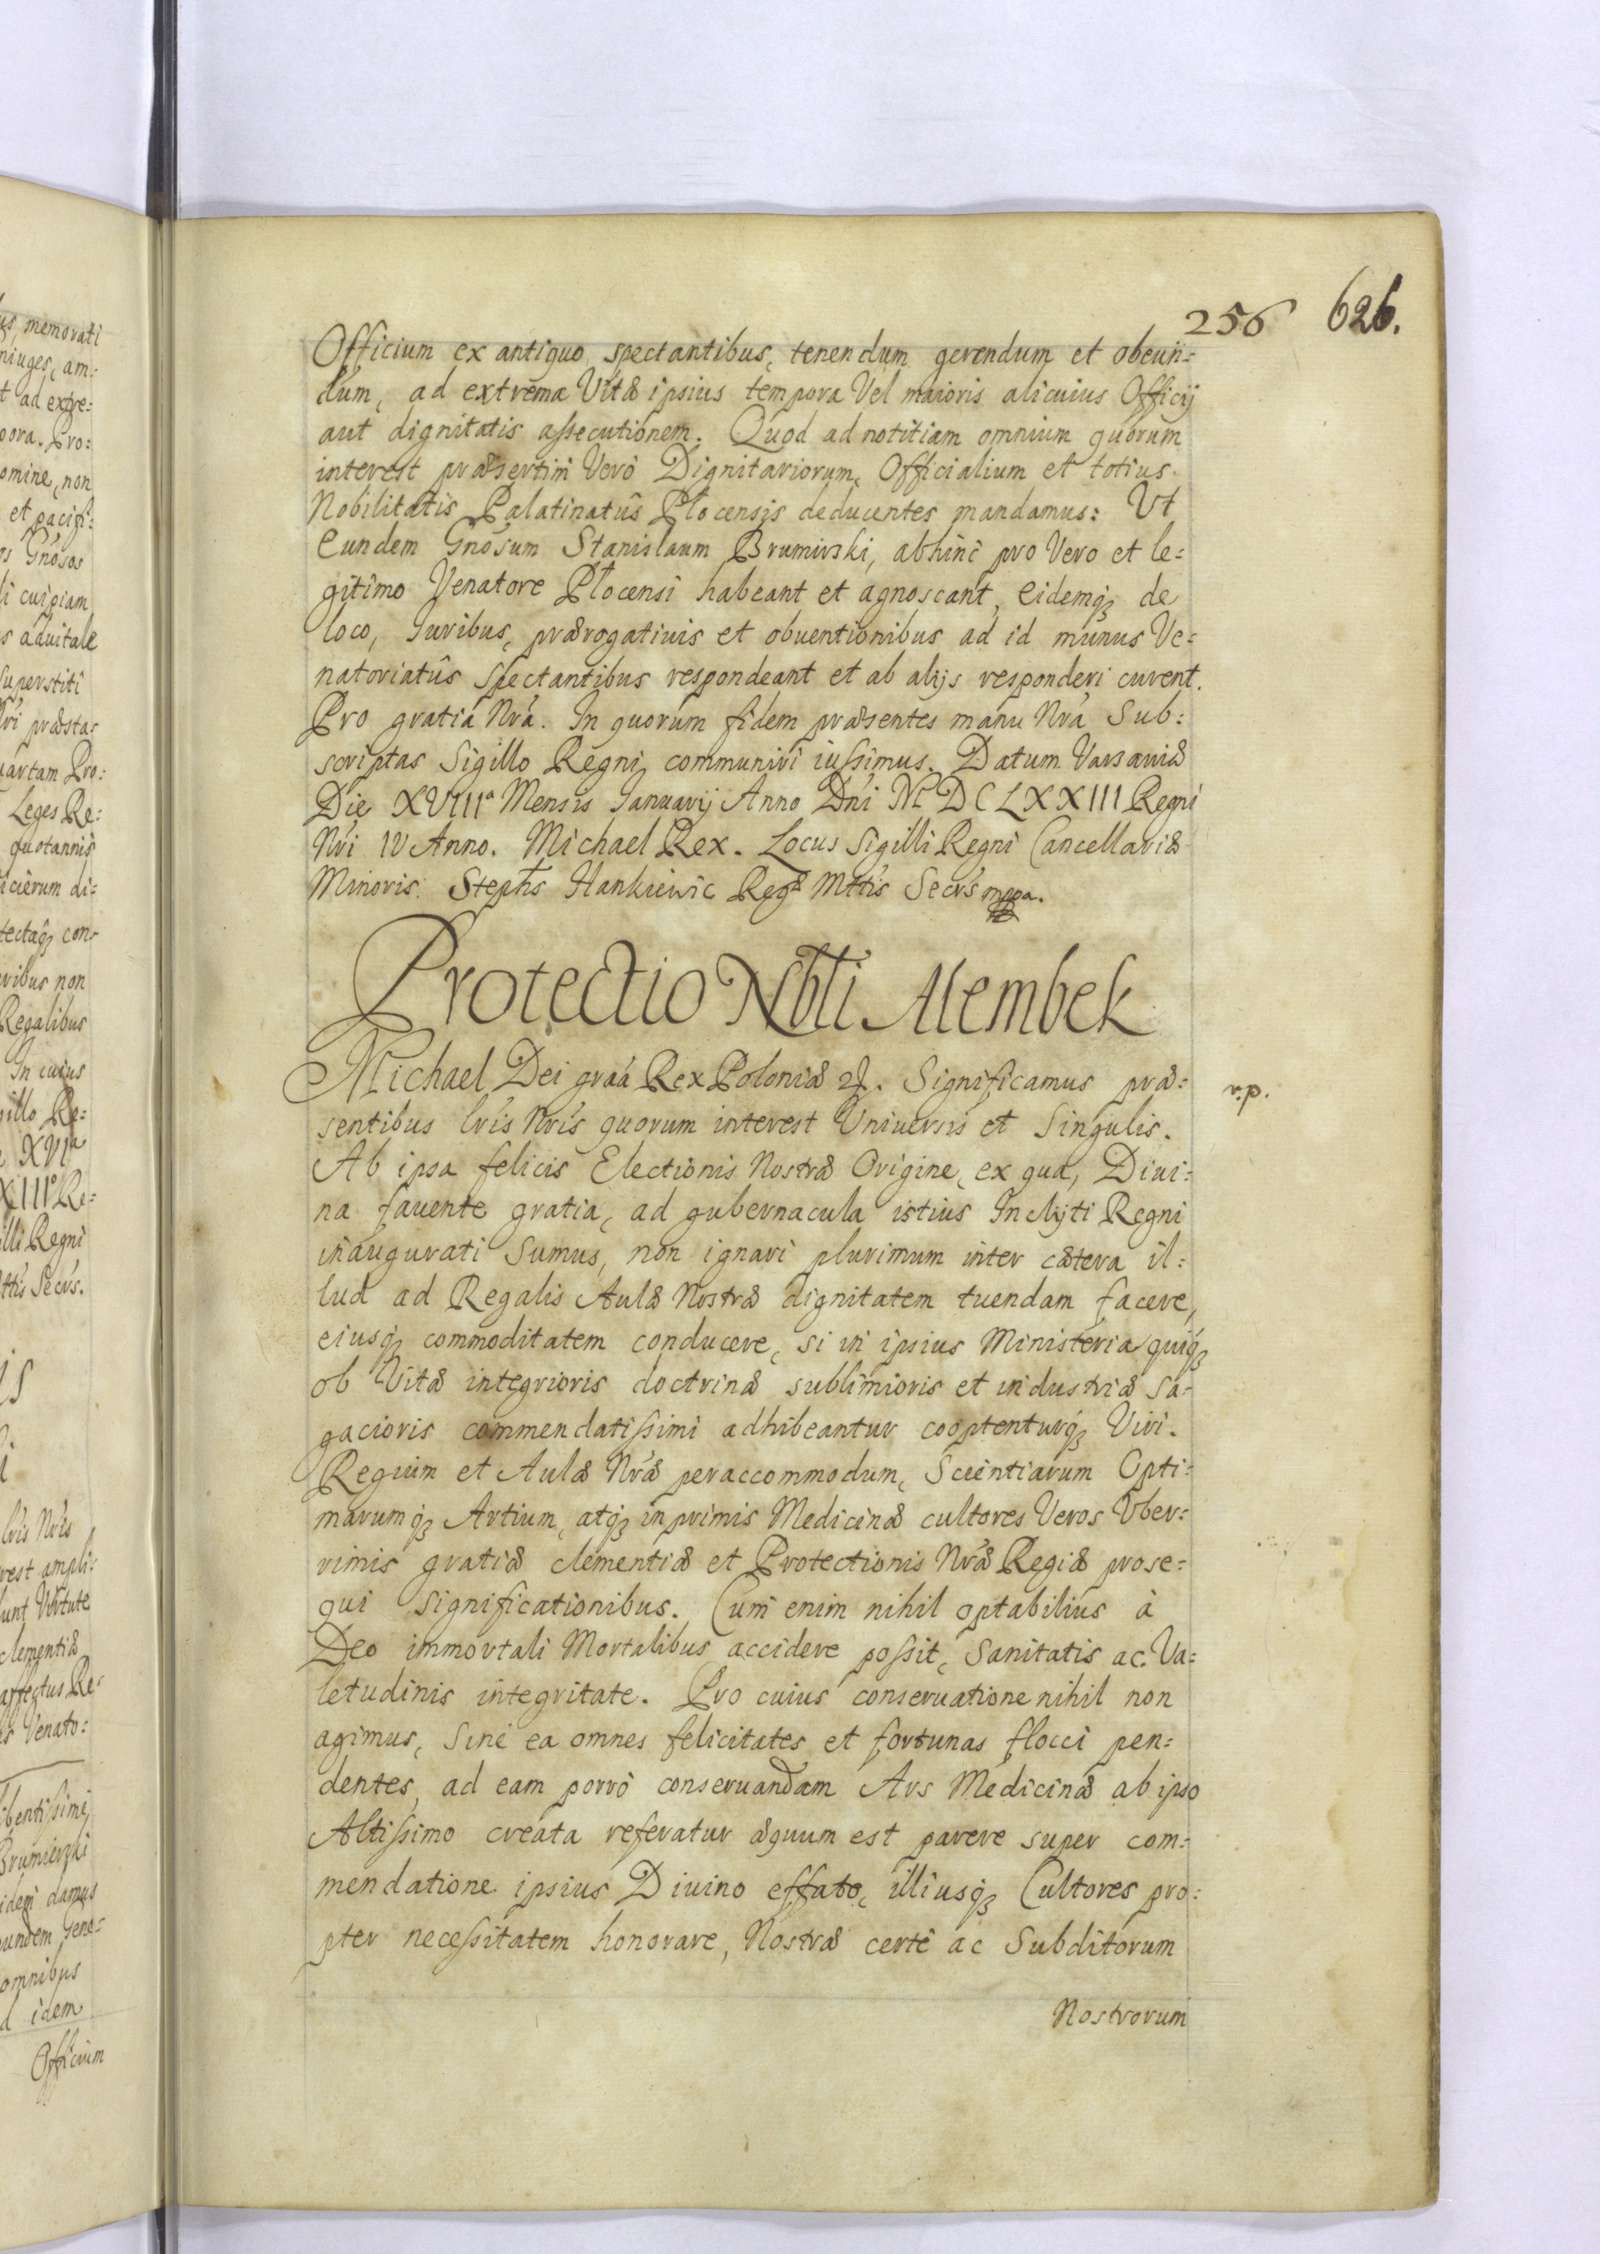 256 626.
Officium ex antiquo spectantibus, tenendum gerendum et obeun=
dum, ad extrema Vitæ ipsius tempora Vel maioris alicuius Officij
aut dignitatis assecutionem. Quod ad notitiam omnium quorum
interest præsertim Verò Dignitariorum, Officialium et totius
Nobilitatis Palatinatûs Plocensis deducentes mandamus: Ut
Eundem Gnõsum Stanislaum Brumirski, abhinc pro Vero et le=
gitimo Venatore Plocensi habeant et agnoscant, eidemq3 de
loco, Iuribus, prærogativis et obventionibus ad id munus Ve=
natoriatûs spectantibus respondeant et ab alijs responderi curent.
Pro gratiâ Nrã. In quorum fidem præsentes manu Nrã Sub=
scriptas Sigillo Regni communiri iussimus. Datum Varsaviæ
Die XVIIIa Mensis Ianuarij Anno Dni MDCLXXIII Regni
Nri IV Anno. Michael Rex. Locus Sigilli Regni Cancellariæ
Minoris. Stephs Hankiewic Regæ Mttis Secrs mppa.
Protectio Nbli Alembek
Michael Dei graã Rex Poloniæ &. Significamus præ=
r.p.
sentibus lris Nris quorum interest Universis et Singulis.
Ab ipsa felicis Electionis Nostræ Origine, ex qua, Divi=
na favente gratia, ad gubernacula istius Inclyti Regni
inaugurati sumus, non ignari plurimum inter cætera il=
lud ad Regalis Aulæ Nostræ dignitatem tuendam facere,
eiusq3 commoditatem conducere, si in ipsius Ministeria quiq3
ob Vitæ integrioris doctrinæ sublimioris et industriæ sa=
gacioris commendatissimi adhibeantur cooptenturq3 Viri.
Regium et Aulæ Nræ peraccommodum, Scientiarum Opti=
marumq3 Artium, atq3 inprimis Medicinæ cultores Veros Vber=
rimis gratiæ clementiæ et Protectionis Nræ Regiæ prose=
qui significationibus. Cum enim nihil optabilius à
Deo immortali Mortalibus accidere possit, Sanitatis ac Va=
letudinis integritate. Pro cuius conservatione nihil non
agimus, Sine ea omnes felicitates et fortunas flocci pen=
dentes, ad eam porrò conservandam Ars Medicinæ ab ipso
Altissimo creata referatur æquum est parere super com=
mendatione ipsius Divino effato, illiusq3 Cultores pro=
pter necessitatem honorare, Nostræ certè ac Subditorum
Nostrorum